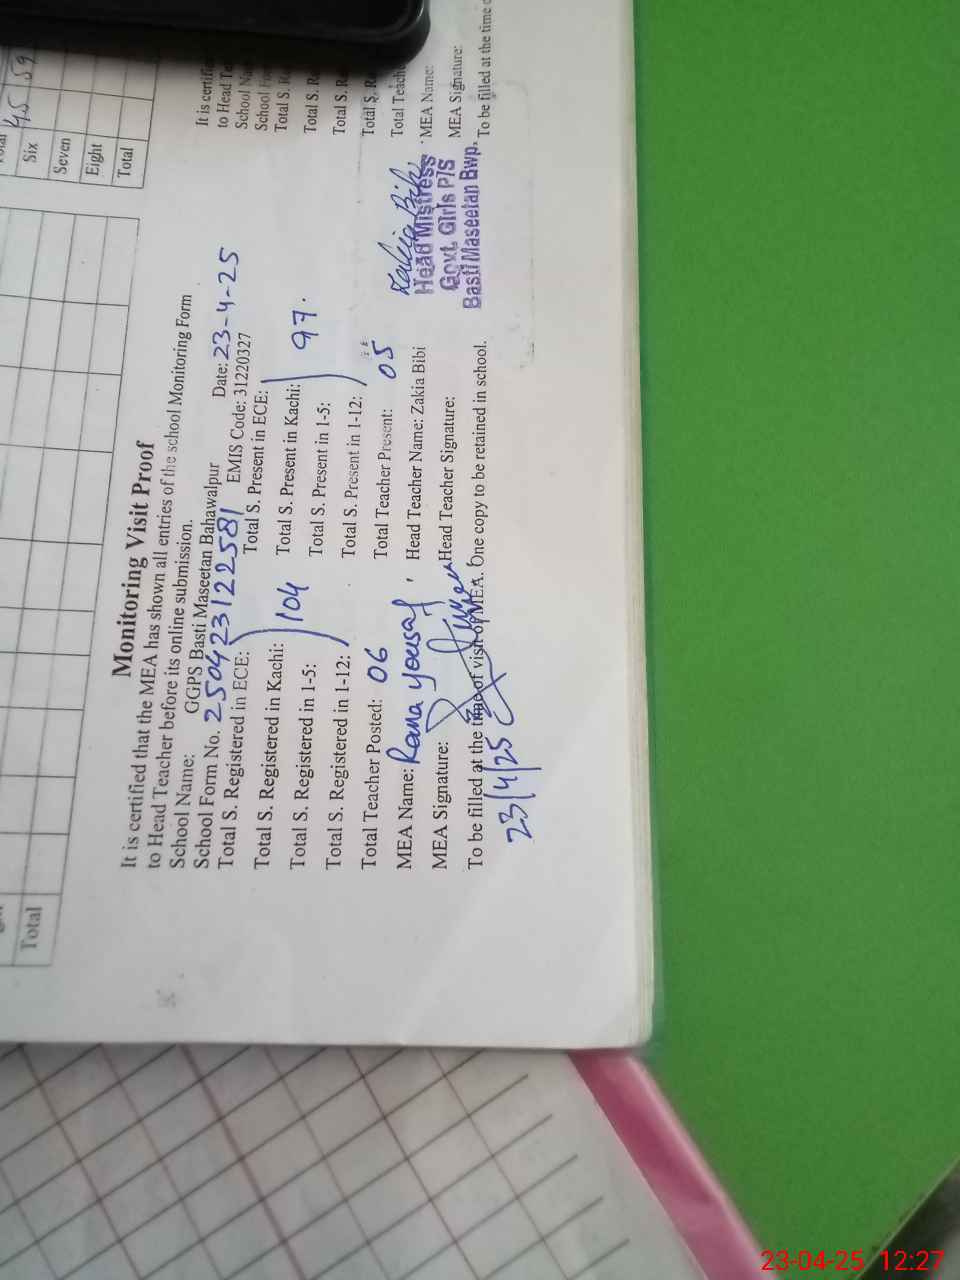 Monitoring Visit Proof
It is certified that the MEA has shown all entries of the school Monitoring Form
to Head Teacher before its online submission.
School Name: GGPS Basti Maseetan Bahawalpur Date: 23-4-25
School Form No. 2504 23122581 EMIS Code: 31220327
Total S. Registered in ECE: Total S. Present in ECE:
Total S. Registered in Kachi: 104 Total S. Present in Kachi: 97.
Total S. Registered in 1-5: Total S. Present in 1-5:
Total S. Registered in 1-12: Total S. Present in 1-12:
Total Teacher Posted: 06 Total Teacher Present: 05
MEA Name: Rana Yousaf, Head Teacher Name: Zakia Bibi
MEA Signature: Head Teacher Signature: Zakia Bibi
To be filled at the time of visit of MEA. One copy to be retained in school.
23/4/25
Head Mistress
Govt. Girls P/S
Basti Maseetan Bwp.
Total
45 59
Six
Seven
Eight
Total
It is certifi
to Head Te
School Na
School Fo
Total S. Re
Total S. Re
Total S. Re
Total S. Re
Total Teach
MEA Name:
MEA Signature:
To be filled at the time o
Total
23-04-25 12:27